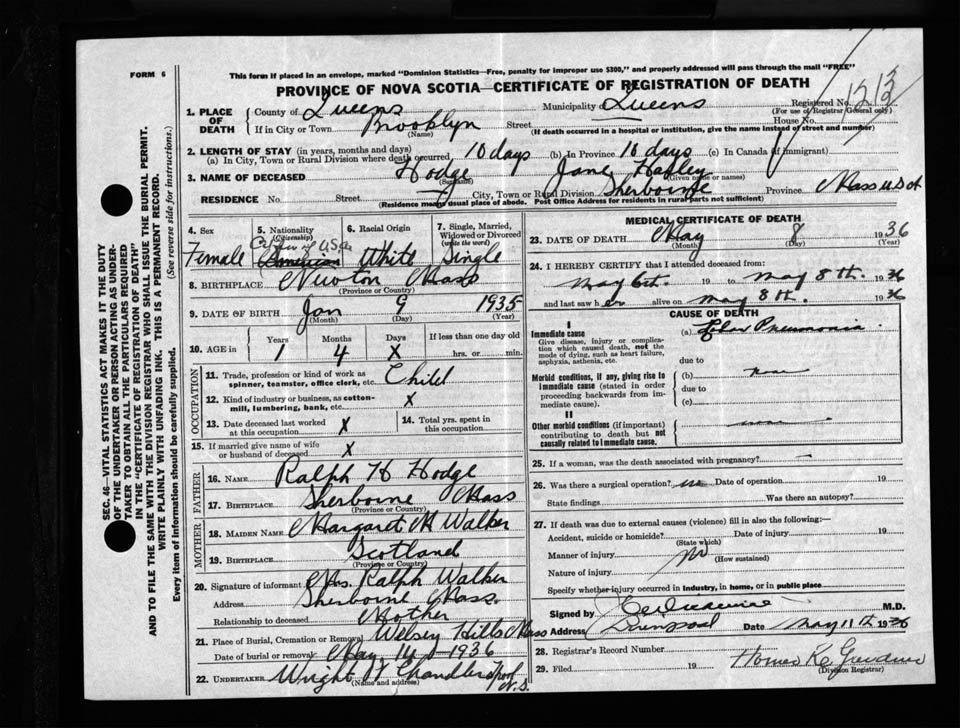 FORM 6
This form if placed in an envelope, marked "Dominion Statistics—Free, penalty for improper use $300," and properly addressed will pass through the mail "FREE"
PROVINCE OF NOVA SCOTIA—CERTIFICATE OF REGISTRATION OF DEATH
SEC. 46—VITAL STATISTICS ACT MAKES IT THE DUTY
OF THE UNDERTAKER OR PERSON ACTING AS UNDER-
TAKER TO OBTAIN ALL THE PARTICULARS REQUIRED
IN THE "CERTIFICATE OF REGISTRATION OF DEATH"
AND TO FILE THE SAME WITH THE DIVISION REGISTRAR WHO SHALL ISSUE THE BURIAL PERMIT.
WRITE PLAINLY WITH UNFADING INK. THIS IS A PERMANENT RECORD.
Every item of information should be carefully supplied. (See reverse side for instructions.)
1. PLACE OF DEATH County of Queens Municipality Queens Registered No. 1213
(For use of Registrar General only)
If in City or Town Brooklyn Street House No.
(Name) (If death occurred in a hospital or institution, give the name instead of street and number)
2. LENGTH OF STAY (in years, months and days)
(a) In City, Town or Rural Division where death occurred 10 days (b) In Province 10 days (c) In Canada (if immigrant)
3. NAME OF DECEASED Hodge Jane
(Surname) (Given name or names)
RESIDENCE No. Street City, Town or Rural Division Sherborne Province Mass USA
(Residence means usual place of abode. Post Office Address for residents in rural parts not sufficient)
4. Sex Female
5. Nationality (Citizenship) Citizen of USA American
6. Racial Origin White
7. Single, Married, Widowed or Divorced (write the word) Single
8. BIRTHPLACE Newton Mass
(Province or Country)
9. DATE OF BIRTH Jan 9 1935
(Month) (Day) (Year)
10. AGE in Years 1 Months 4 Days X If less than one day old hrs. or min.
OCCUPATION
11. Trade, profession or kind of work as spinner, teamster, office clerk, etc. Child
12. Kind of industry or business, as cotton-mill, lumbering, bank, etc. X
13. Date deceased last worked at this occupation X
14. Total yrs. spent in this occupation
15. If married give name of wife or husband of deceased X
FATHER
16. NAME Ralph H Hodge
17. BIRTHPLACE Sherborne Mass
(Province or Country)
MOTHER
18. MAIDEN NAME Margaret M Walker
19. BIRTHPLACE Scotland
(Province or Country)
20. Signature of informant Mrs. Ralph Walker
Address Sherborne Mass.
Relationship to deceased Mother
21. Place of Burial, Cremation or Removal Hills Mass
Date of burial or removal May 14 1936
22. UNDERTAKER Wright F Chandler N.S.
(Name and address)
MEDICAL CERTIFICATE OF DEATH
23. DATE OF DEATH May 8 1936
(Month) (Day) (Year)
24. I HEREBY CERTIFY that I attended deceased from:
May 6th. 19 to May 8th. 1936
and last saw her alive on May 8th. 1936
CAUSE OF DEATH
I
Immediate cause (a) Lobar Pneumonia
Give disease, injury or complication which caused death, not the mode of dying, such as heart failure, asphyxia, asthenia, etc.
due to
Morbid conditions, if any, giving rise to immediate cause (stated in order proceeding backwards from immediate cause). (b) none
due to
(c)
II
Other morbid conditions (if important) contributing to death but not causally related to immediate cause. none
25. If a woman, was the death associated with pregnancy? —
26. Was there a surgical operation? no Date of operation 19
State findings Was there an autopsy?
27. If death was due to external causes (violence) fill in also the following:—
Accident, suicide or homicide? Date of injury 19
(State which)
Manner of injury no
(How sustained)
Nature of injury
Specify whether injury occurred in industry, in home, or in public place
Signed by M.D.
Address Liverpool Date May 11th 1936
28. Registrar's Record Number
29. Filed 19 Homer
(Division Registrar)